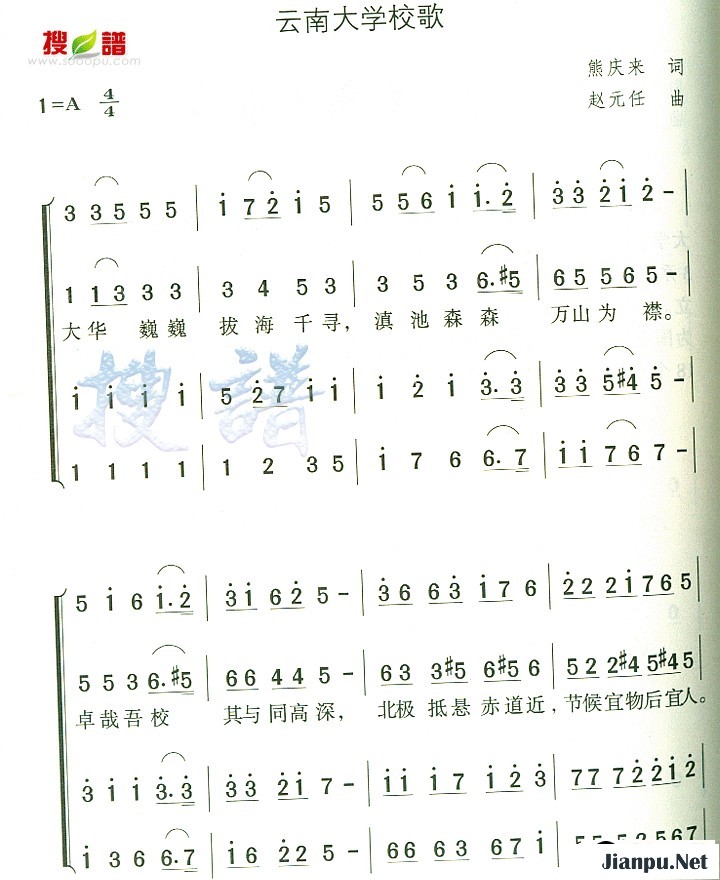 云南大学校歌
搜谱
www.sooopu.com
熊庆来 词
1=A 4/4
赵元任 曲
3 3 5 5 5 | i 7 2 i 5 | 5 5 6 i i. 2 | 3 3 2 i 2 - |
1 1 3 3 3 | 3 4 5 3 | 3 5 3 6. #5 | 6 5 5 6 5 - |
大华 巍巍 拔海千寻，滇池森森 万山为襟。
i i i i | 5 2 7 i i | i 2 i 3. 3 | 3 3 5 #4 5 - |
搜谱
1 1 1 1 | 1 2 3 5 | i 7 6 6. 7 | i i 7 6 7 - |
5 i 6 i. 2 | 3 i 6 2 5 - | 3 6 6 3 i 7 6 | 2 2 2 i 7 6 5
5 5 3 6. #5 | 6 6 4 4 5 - | 6 3 3 #5 6 #5 5 | 5 2 2 #4 5 #4 5
卓哉吾校 其与同高深，北极抵悬赤道近，节候宜物后宜人。
3 i i 3. 3 | 3 3 2 i 7 - | i i i 7 i 2 3 | 7 7 7 2 2 i 2
i 3 6 6. 7 | i 6 2 2 5 - | 6 6 6 3 6 7 i |
Jianpu.Net